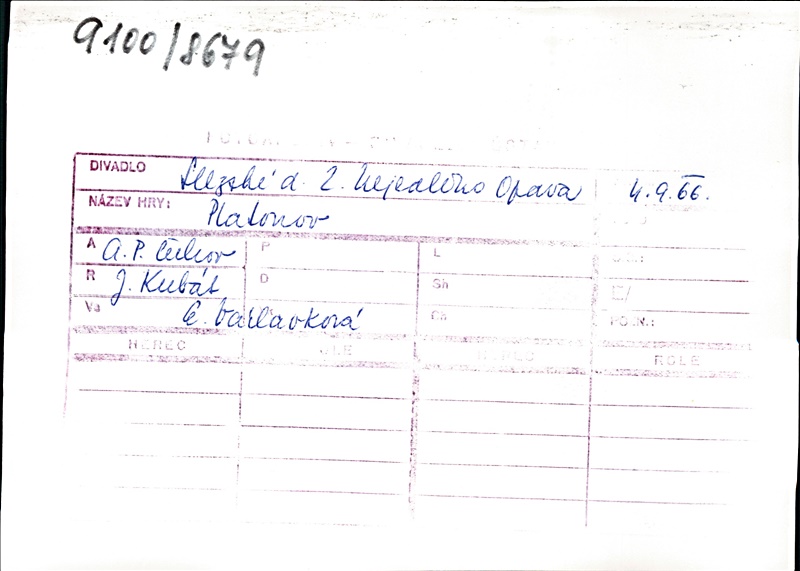 9100/8679
DIVADLO Slezské d. Z. Nejedlého Opava 4.9.66.
NÁZEV HRY: Platonov
A A. P. Čechov P L
R J. Kubát D Sh
Va E. Vařlavková Ch PO.N.:
HEREC ROLE HEREC ROLE